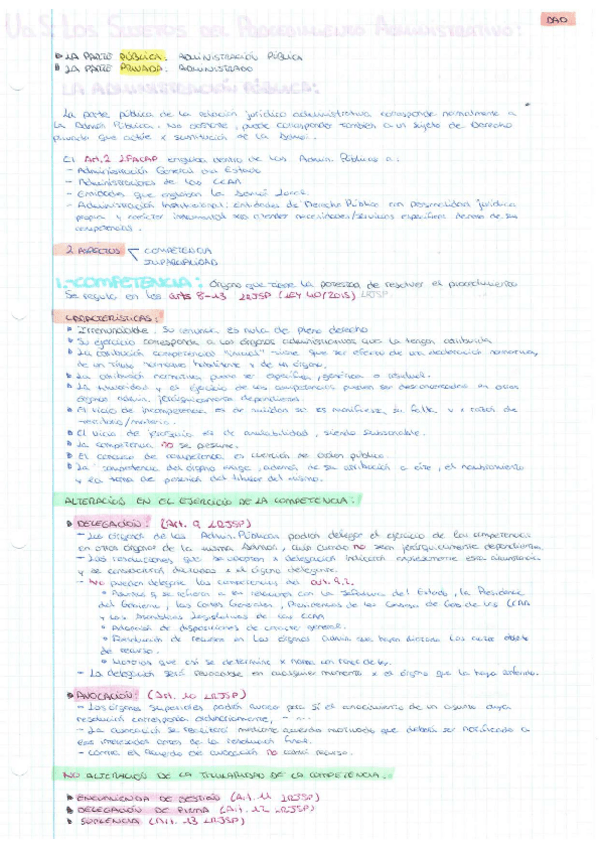 DAO
UD.5: LOS SUJETOS DEL PROCEDIMIENTO ADMINISTRATIVO:
LA PARTE PÚBLICA. ADMINISTRACIÓN PÚBLICA
LA PARTE PRIVADA. ADMINISTRADO
LA ADMINISTRACIÓN PÚBLICA:
La parte pública de la relación jurídico administrativa corresponde normalmente a
la Admón Pública. No obstante, puede corresponder también a un sujeto de Derecho
privado que actúe x sustitución de la Admón.
El Art.2 engloba dentro de las Admin. Públicas a:
- Administración General del Estado
- Administraciones de las CCAA
- Entidades que engloban la Admón Local.
- Administración Institucional: entidades de Derecho Público con personalidad jurídica
propia y carácter instrumental para atender necesidades/servicios específicos dentro de sus
competencias.
2 ASPECTOS COMPETENCIA
IMPARCIALIDAD
1.-COMPETENCIA: Órgano que tiene la potestad de resolver el procedimiento
Se regula en los arts 8-13 LRJSP (LEY 40/2015) LRJSP.
CARACTERÍSTICAS:
Irrenunciable. Su renuncia es nula de pleno derecho
Su ejercicio corresponde a los órganos administrativos que la tengan atribuida
La atribución competencial tiene que ser efecto de una declaración normativa,
de un título normativo habilitante y de un órgano.
La atribución normativa puede ser específica, genérica o residual.
La titularidad y el ejercicio de las competencias pueden ser desconcentradas en otros
órganos admin. jerárquicamente dependientes.
El vicio de incompetencia es de nulidad si es manifiesta su falta x razón de
territorio/materia.
El vicio de jerarquía es de anulabilidad, siendo subsanable.
La competencia no se presume.
El de competencia es cuestión de orden público.
La competencia del órgano exige, además de su atribución a este, el nombramiento
y la toma de posesión del titular del mismo.
ALTERACIÓN EN EL EJERCICIO DE LA COMPETENCIA:
DELEGACIÓN: (Art. 9 LRJSP)
- Los órganos de las Admin. Públicas podrán delegar el ejercicio de las competencias
en otros órganos de la misma Admón, aun cuando no sean jerárquicamente dependientes.
- Las resoluciones que se adopten x delegación indicarán expresamente esta circunstancia
y se considerarán dictadas x el órgano delegante.
- No pueden delegarse las competencias del art. 9.2.
Asuntos q se refieran a en relaciones con la Jefatura del Estado, la Presidencia
del Gobierno, las Cortes Generales, Presidencias de los Consejos de Gob de las CCAA
y las Asambleas Legislativas de las CCAA
Adopción de disposiciones de carácter general.
Resolución de recursos en los órganos admin que hayan dictado los actos objeto
de recurso.
Materias que así se determine x norma con rango de ley.
- La delegación será revocable en cualquier momento x el órgano que la haya
AVOCACIÓN: (Art. 10 LRJSP)
- Los órganos superiores podrán avocar para sí el conocimiento de un asunto cuya
resolución corresponda ordinariamente, - ...
- La avocación se realizará mediante acuerdo motivado que deberá ser notificado a
los interesados antes de la resolución final.
- Contra el acuerdo de avocación no cabrá recurso.
NO ALTERACIÓN DE LA TITULARIDAD DE LA COMPETENCIA.
ENCOMIENDA DE GESTIÓN (Art. 11 LRJSP)
DELEGACIÓN DE FIRMA (Art. 12 LRJSP)
SUPLENCIA (Art. 13 LRJSP)